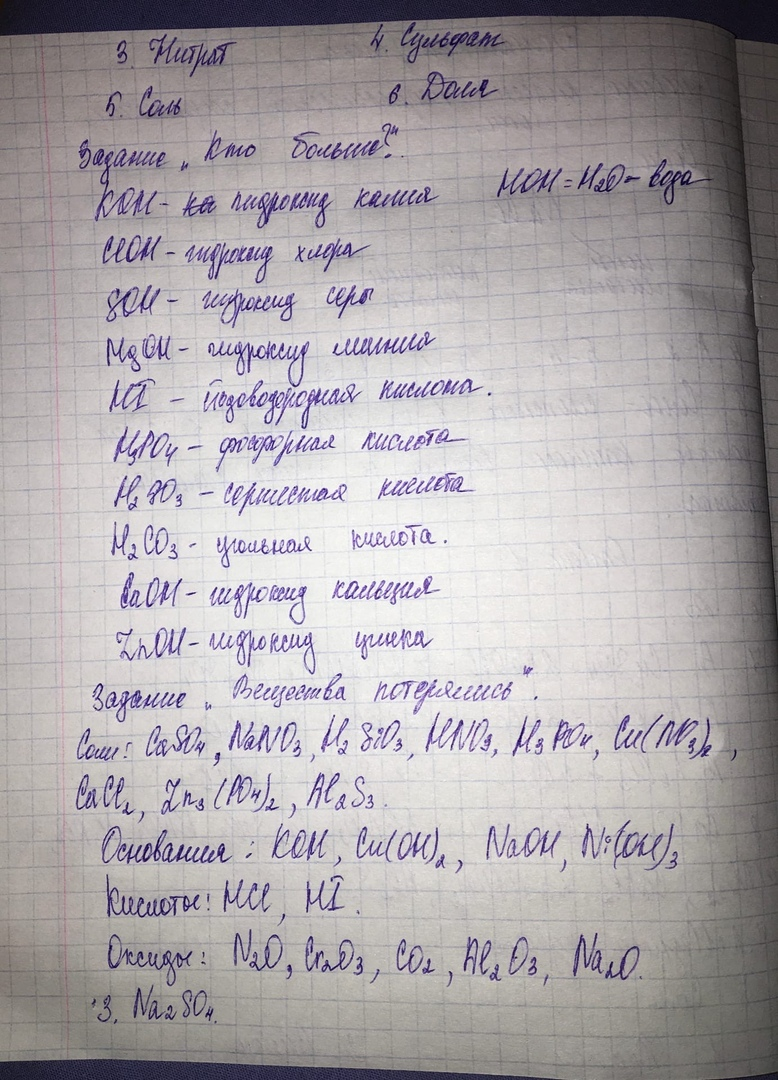 3. Нитрат 4. Сульфат
5. Соль 6. Доля
Задание „Кто больше?".
KOH - гидроксид калия HOH = H₂O - вода
ClOH - гидроксид хлора
SOH - гидроксид серы
MgOH - гидроксид магния
HI - йодоводородная кислота.
H₃PO₄ - фосфорная кислота
H₂SO₃ - сернистая кислота
H₂CO₃ - угольная кислота.
CaOH - гидроксид кальция
ZnOH - гидроксид цинка
Задание „Вещества потерялись".
Соли: CaSO₄, NaNO₃, H₂SiO₃, HNO₃, H₃PO₄, Cu(NO₃)₂,
CaCl₂, Zn₃(PO₄)₂, Al₂S₃.
Основания: KOH, Cu(OH)₂, NaOH, Ni(OH)₃
Кислоты: HCl, HI.
Оксиды: N₂O, Cr₂O₃, CO₂, Al₂O₃, Na₂O.
3. Na₂SO₄.